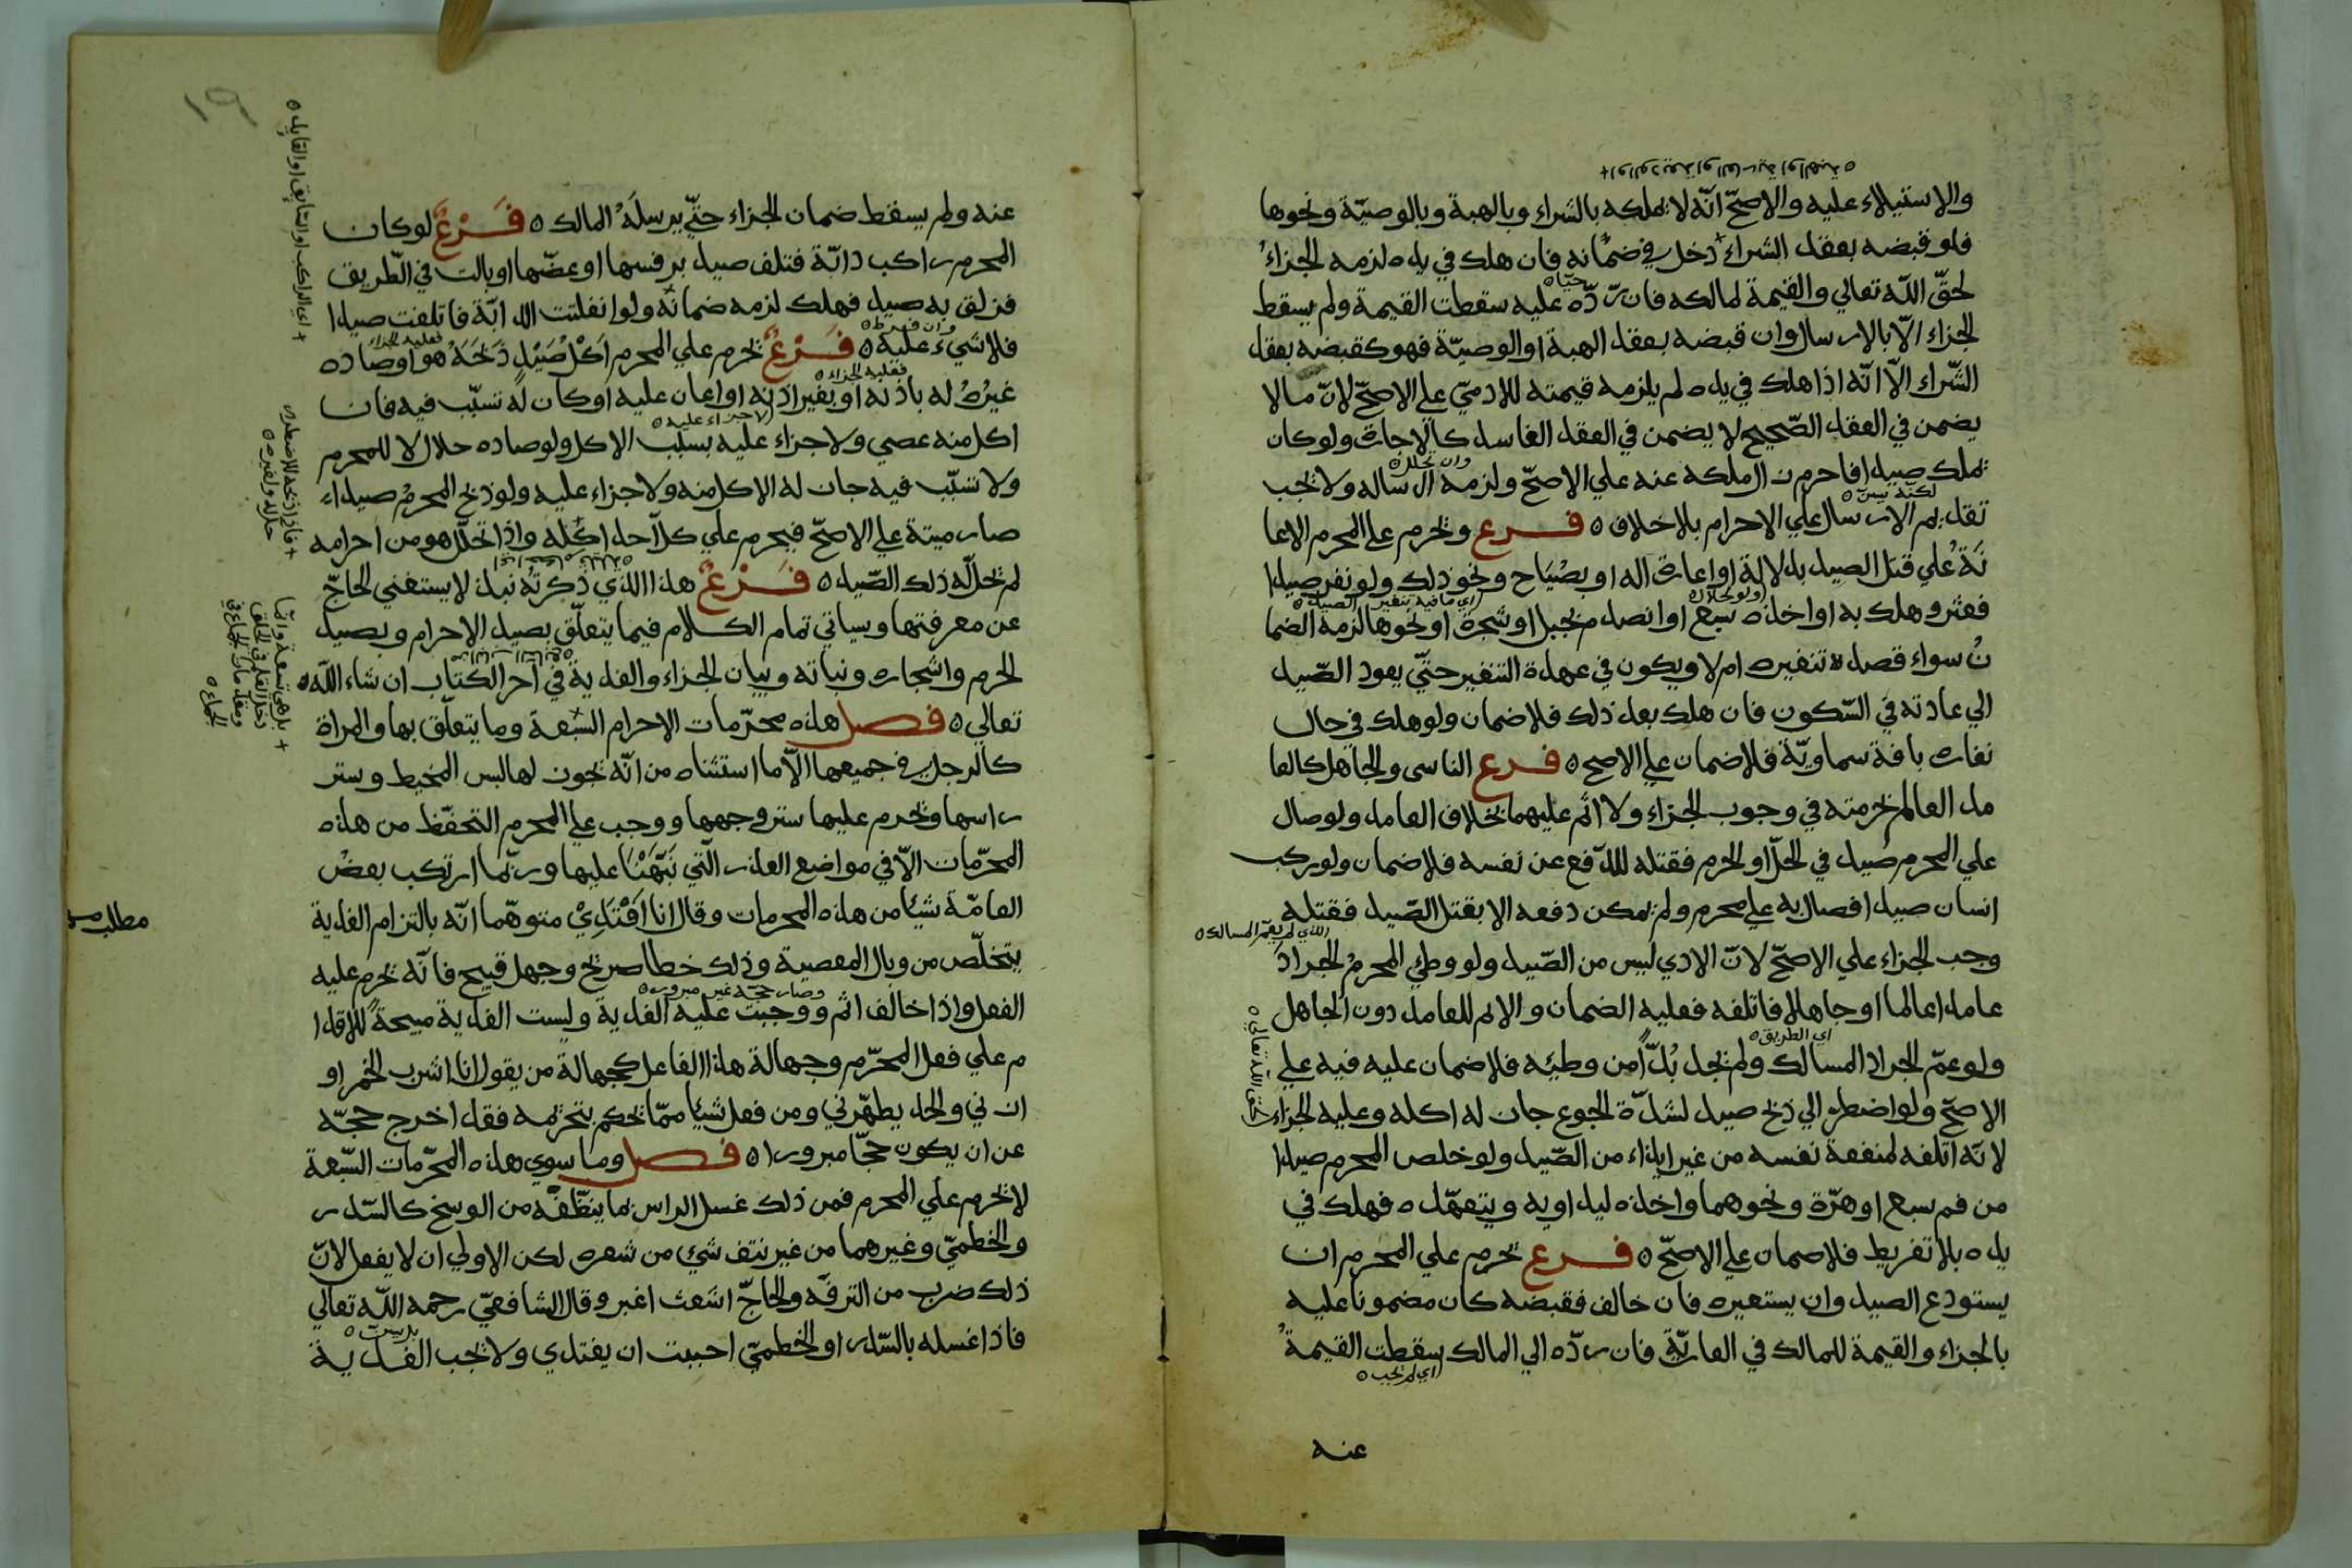 والاستيلاء عليه والاصحّ انّه لا يملكه بالشراء وبالهبة وبالوصيّة ونحوها
فلو قبضه بعقد الشراء دخل في ضمانه فان هلك في يده لزمه الجزاءُ
لحقّ الله تعالي والقيمة لمالكه فان ردّه عليه سقطت القيمة ولم يسقط
الجزاء الّا بالارسال وان قبضه بعقد الهبة او الوصيّة فهو كقبضه بعقد
الشّراء الّا انّه اذا هلك في يده لم يلزمه قيمته للادميّ علي الاصحّ لانّ ما لا
يضمن في العقد الصّحيح لا يضمن في العقد الفاسد كالاجارة ولو كان
يملك صيدا فاحرم زال ملكه عنه علي الاصحّ ولزمه ارساله ولا يجب
تقديم الارسال علي الاحرام بلا خلاف ه فرع ويحرم علي المحرم الاعا
نَة علي قتل الصيد بدلالة او اعارة اله او بصْيَاح ونحو ذلك ولو نفر صيدا
فعثر وهلك به او اخذه سبع او انصدم بجبل او شجرة او نحوها لزمه الضما
نُ سواء قصد تنفيره ام لا ويكون في عهدة التنفير حتّي يعود الصّيد
الي عادته في السّكون فان هلك بعد ذلك فلا ضمان ولو هلك في حال
نفاره بافة سماويّة فلا ضمان علي الاصح ه فرع الناسى والجاهل كالعا
مد العالم بحرمته في وجوب الجزاء ولا اثم عليهما بخلاف العامد ولو صال
علي المحرم صيد في الحلّ او الحرم فقتله للدّفع عن نفسه فلا ضمان ولو ركب
انسان صيدا فصال به علي محرم ولم يمكن دفعه الا بقتل الصّيد فقتله
وجب الجزاء علي الاصحّ لانّ الادي ليس من الصّيد ولو وطئ المحرمُ الجرادَ
عامدا عالما او جاهلا فاتلفه فعليه الضمان والاثم للعامد دون الجاهل
ولو عمّ الجراد المسالك ولم يجد بُدّاً من وطيئه فلا ضمان عليه فيه علي
الاصحّ ولو اضطر الي ذبح صيد لشدّة الجوع جاز له اكله وعليه الجزاء
لانّه اتلفه لمنفعة نفسه من غير ايذاء من الصّيد ولو خلص المحرم صيدا
من فم سبع او هرّة ونحوهما واخذه ليداويه ويتعهّده فهلك في
يده بلا تفريط فلا ضمان علي الاصحّ ه فرع يحرم علي المحرم ان
يستودع الصيد وان يستعيره فان خالف فقبضه كان مضمونا عليه
بالجزاء والقيمة للمالك في العاريّة فان ردّه الي المالك سقطت القيمةُ
عنه
او الوديعة او العارية او الهبة ه
حيّا ه
وان تحلل ه
لكنّه يسن ه
ولو لحلال ه
الذي لم يعمّ المسالك ه
اي الطريق ه
لحق الله تعالي ه
اي لم تجب ه
١٩
عنه ولم يسقط ضمان الجزاء حتّي يرسلَه المالك ه فَرْعٌ لو كان
المحرم راكب دابّة فتلف صيد برفسها او عضّها او بالت في الطّريق
فزلق به صيد فهلك لزمه ضمانُه ولو انفلتت الدابّة فاتلفت صيدا
فلا شيء عليه ه فَرْعٌ يحرم علي المحرم اَكْلُ صَيْدٍ ذَبَحَهُ هو او صَاده
غيرُه له باذنه او بغير اذنه او اعان عليه او كان له تسبّب فيه فان
اكل منه عصي ولا جزاء عليه بسبب الاكل ولو صاده حلال لا للمحرم
ولا تسبّب فيه جاز له الاكل منه ولا جزاء عليه ولو ذبح المحرمُ صيداء
صار ميتة علي الاصحّ فيحرم علي كلّ احد اكله واذا تحلّل هو من احرامه
لم يحلّ له ذلك الصّيد ه فَرْعٌ هذا الذي ذكرتُه نبذ لا يستغني الحاجّ
عن معرفتها وسياتي تمام الكلام فيما يتعلّق بصيد الاحرام وبصيد
الحرم واشجاره ونباته وبيان الجزاء والفدية في اخر الكتاب ان شاء الله
تعالي ه فصل هذه محرّمات الاحرام السّبعة وما يتعلّق بها والمراة
كالرجل في جميعها الّا ما استثناه من انّه يجوز لها لبس المخيط وستر
راسها ويحرم عليها ستر وجهها ووجب علي المحرم التحفّظ من هذه
المحرّمات الّا في مواضع العذر الّتي نَبَّهْنَا عليها وربّما ارتكب بعضُ
العامّة شيئا من هذه المحرمات وقال انا اَفْتَدِيْ متوهّما انّه بالتزام الفدية
يتخلّص من وبال المعصية وذلك خطا صريح وجهل قبيح فانّه يحرم عليه
الفعل واذا خالف اثم ووجبت عليه الفدية وليست الفدية مبيحةً للاقدا
م علي فعل المحرّم وجهالة هذا الفاعل كجهالة من يقول انا اشرب الخمر او
ازني والحد يطهّرني ومن فعل شيئا ممّا يحكم بتحريمه فقد اخرج حجّه
عن ان يكون حجّا مبرورا ه فصل وما سوي هذه المحرّمات السّبعة
لا يحرم علي المحرم فمن ذلك غسل الراس بما ينظّفه من الوسخ كالسّدر
والخطميّ وغيرهما من غير نتف شيء من شعره لكن الاولي ان لا يفعل لانّ
ذلك ضرب من الترفّه والحاجّ اشعث اغبر وقال الشافعيّ رحمه الله تعالي
فاذا غسله بالسّدر او الخطميّ احببت ان يفتدي ولا تجب الفدية
اي الراكب او السّايق او القايد ه
وان فرط ه
فعليه الجزاء
فعليه الجزاء ه
لا جزاء عليه ه
وصار حجّه غير مبرور ه
مطلب